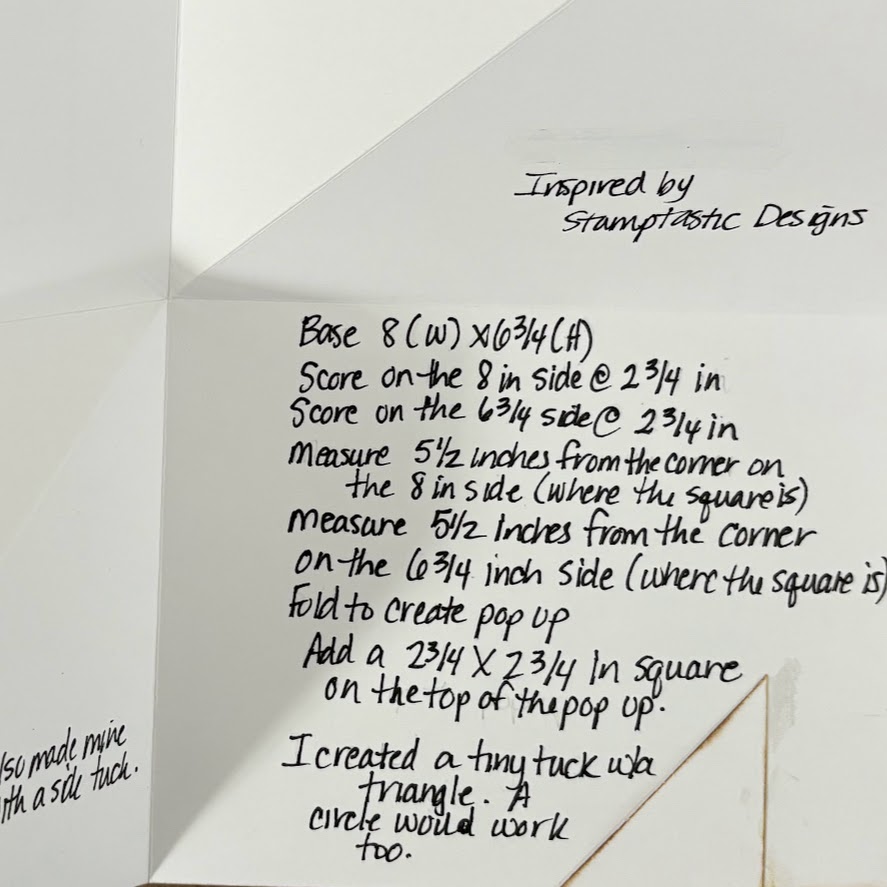 Inspired by
Stamptastic Designs
Base 8 (W) x 6 3/4 (H)
Score on the 8 in side @ 2 3/4 in
Score on the 6 3/4 side @ 2 3/4 in
measure 5 1/2 inches from the corner on
the 8 in side (where the square is)
measure 5 1/2 inches from the corner
on the 6 3/4 inch side (where the square is)
Fold to create pop up
Add a 2 3/4 X 2 3/4 in square
on the top of the pop up.
I created a tiny tuck w/a
triangle. A
circle would work
too.
made mine
a side tuck.